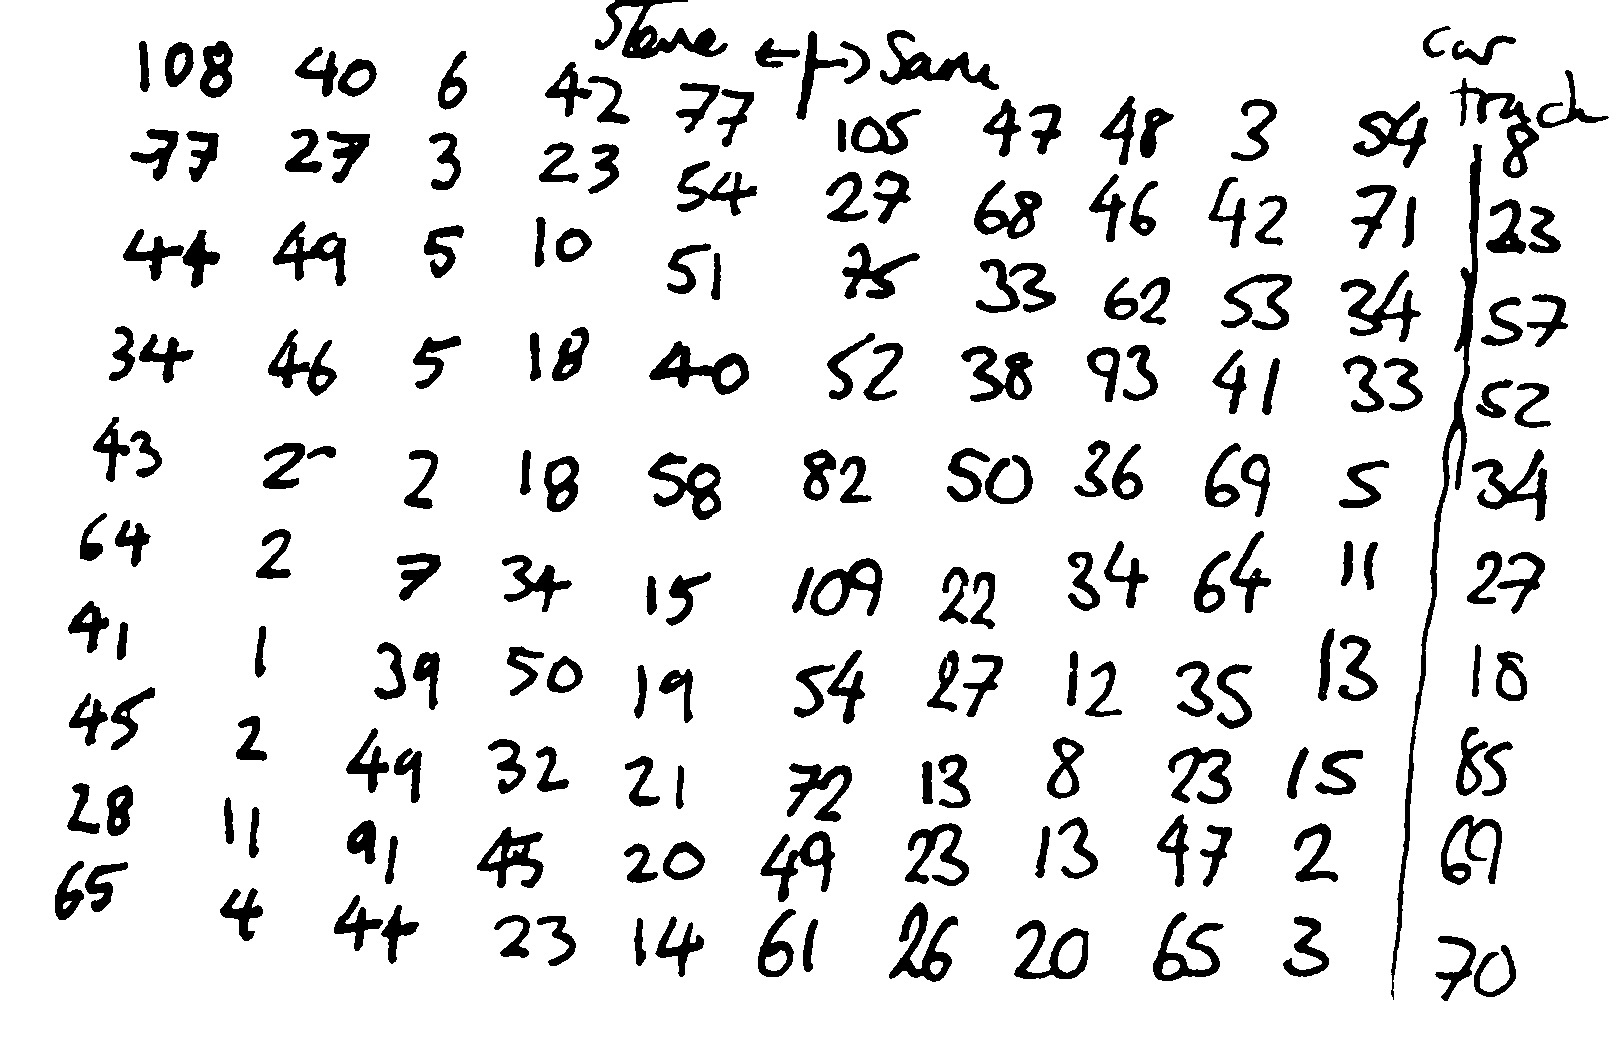 Steve ← | → Sam car
track
108 40 6 42 77 105 47 48 3 54 8
77 27 3 23 54 27 68 46 42 71 23
44 49 5 10 51 75 33 62 53 34 57
34 46 5 18 40 52 38 93 41 33 52
43 2 2 18 58 82 50 36 69 5 34
64 2 7 34 15 109 22 34 64 11 27
41 1 39 50 19 54 27 12 35 13 18
45 2 49 32 21 72 13 8 23 15 85
28 11 91 45 20 49 23 13 47 2 69
65 4 44 23 14 61 26 20 65 3 70